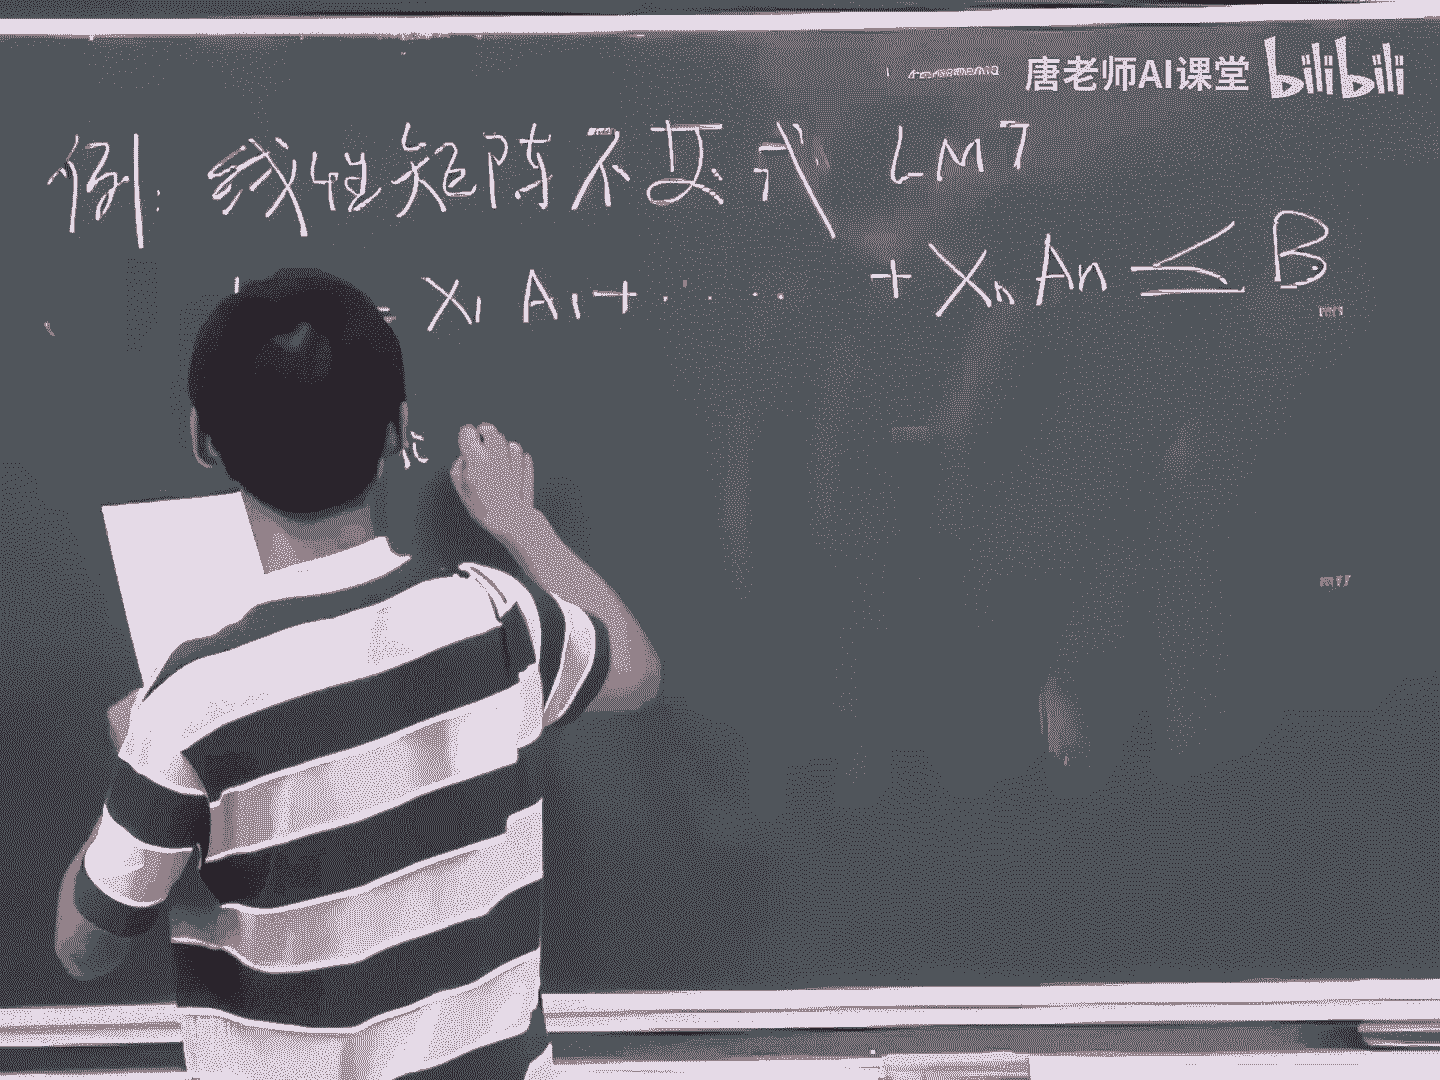 唐老师AI课堂 bilibili
例: 线性矩阵不等式 LMI
= X₁ A₁ + ····· + Xₙ Aₙ ≤ B